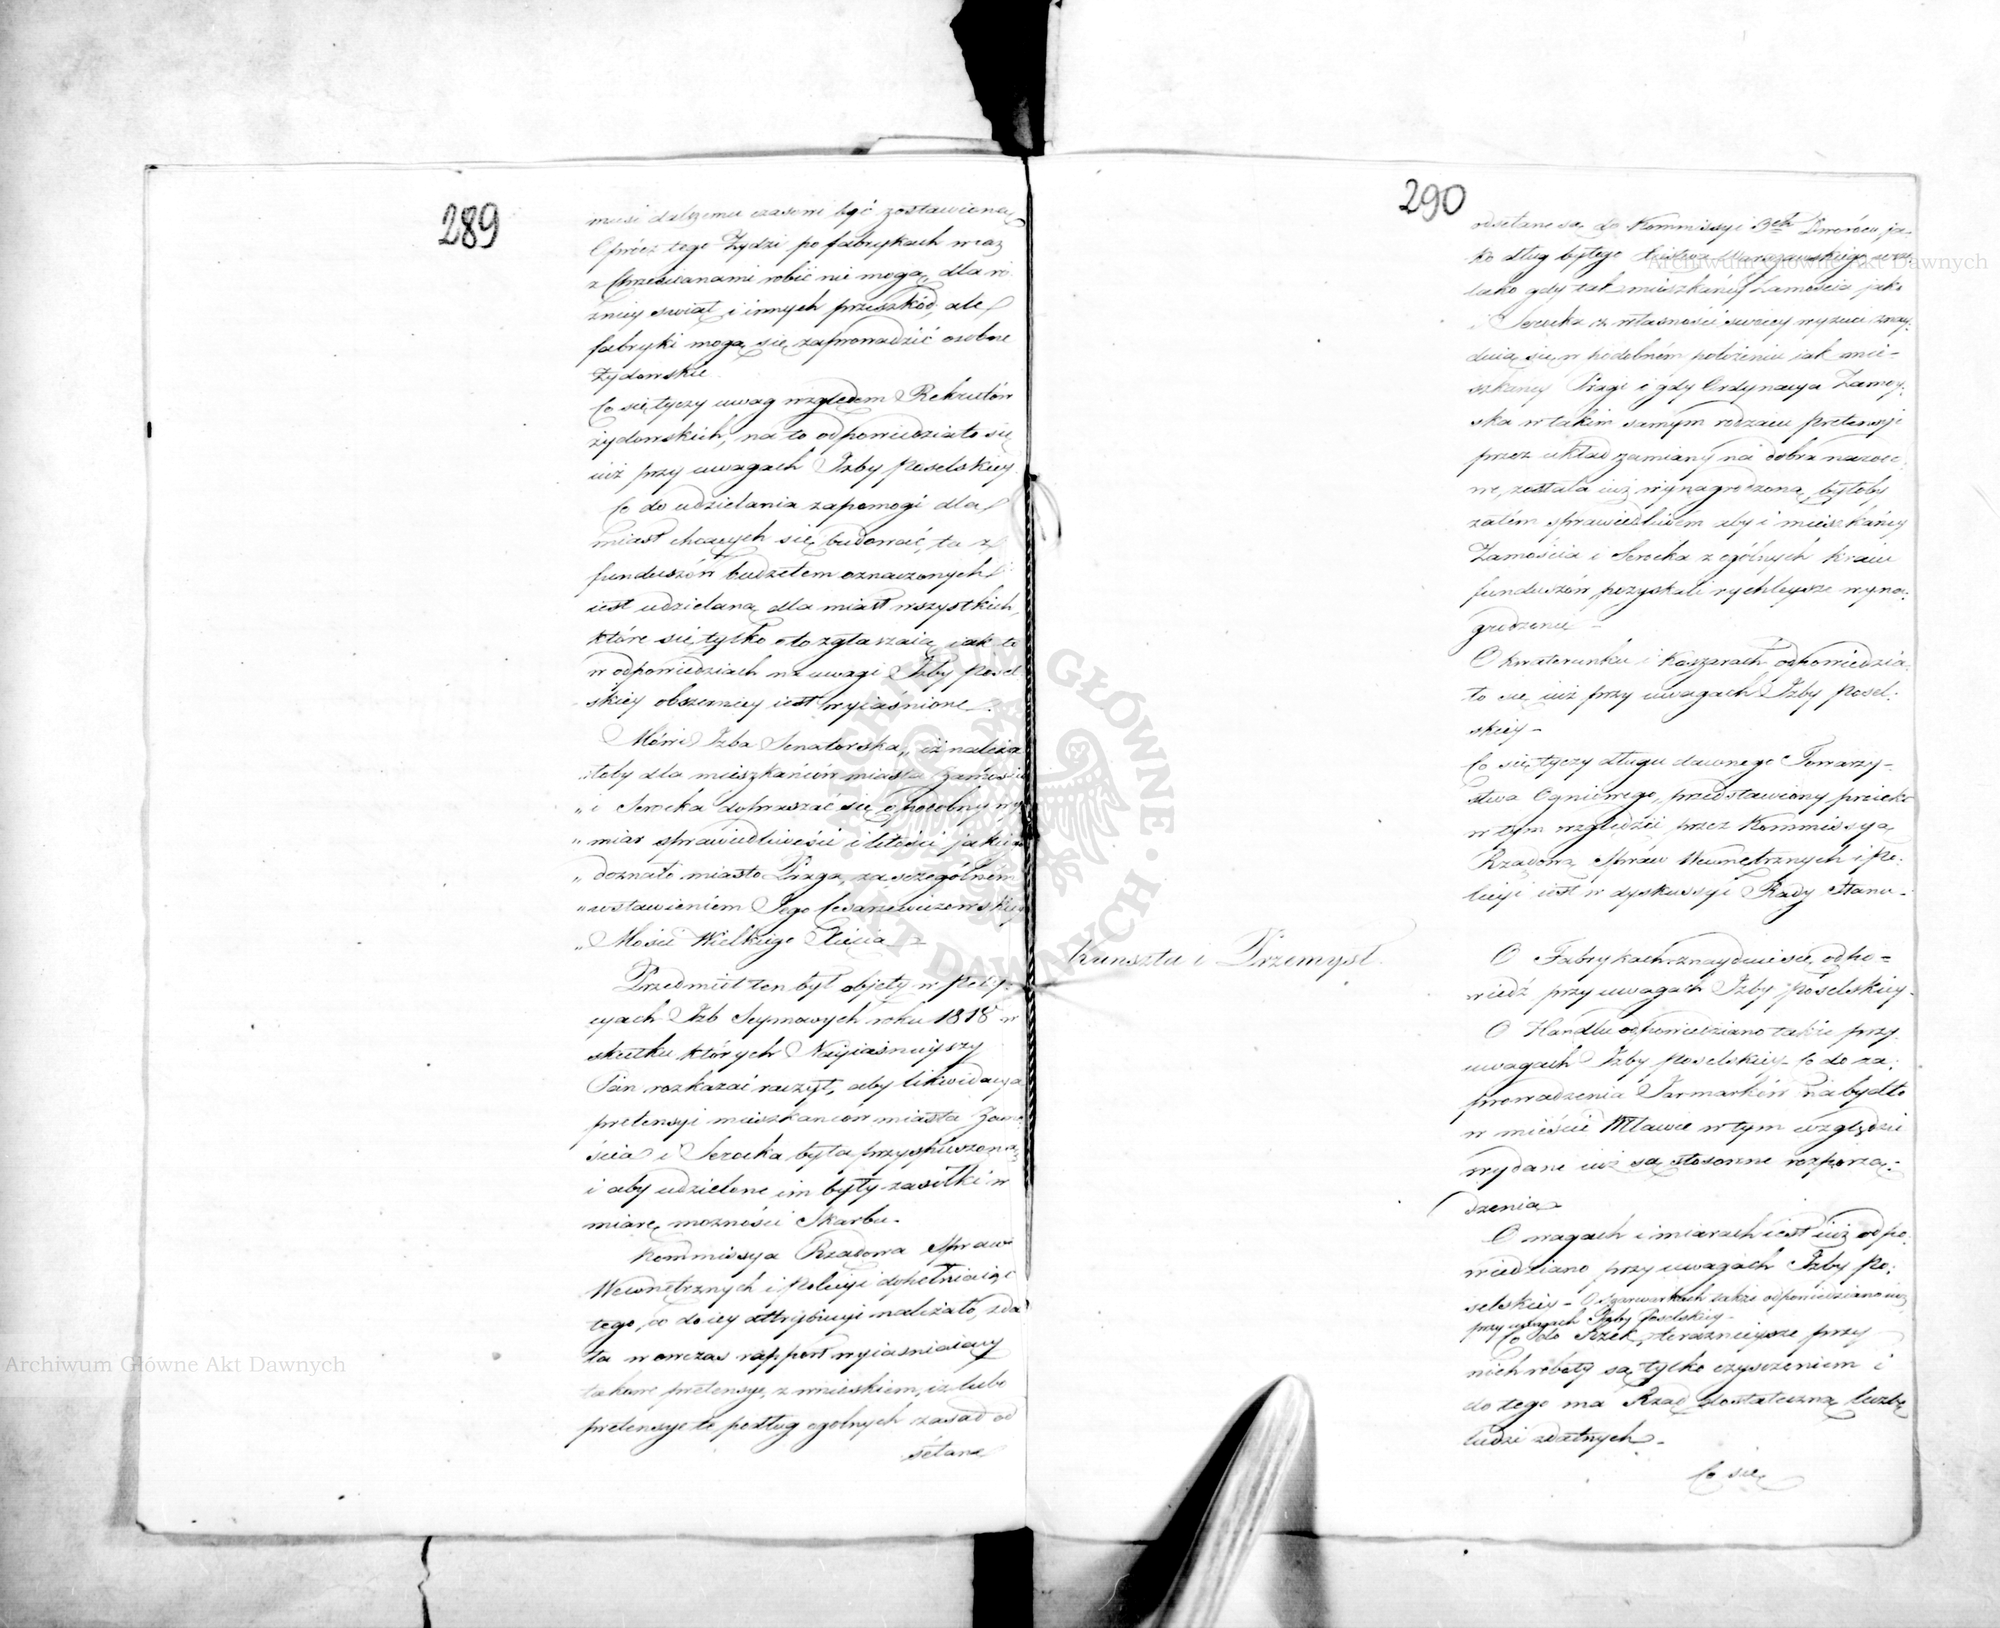 289
musi dalszemu czasowi być zostawione
Oprócz tego Żydzi po fabrykach wraz
z Chrześcianami robić nie mogą, dla ró
żnicy świąt i innych przeszkód, ale
fabryki mogą się zaprowadzić osobne
Żydowskie.
Co się tyczy uwag względem Rekrutów
żydowskich, na to odpowiedziało się
iuż przy uwagach Izby Poselskiey
Co do udzielania zapomogi dla
miast chcących się budować, ta z
funduszów budżetem oznaczonych
iest udzielaną dla miast wszystkich,
które się tylko o to zgłaszaią, iak to
w odpowiedziach na uwagi Izby Posel-
skiey obszerniey iest wyiaśnione.
Mówi Izba Senatorska, „iż należa
„łoby dla mieszkańców miasta Zamościa
„i Serocka dopraszać się o podobny wy
„miar sprawiedliwości i litości jakiey
„doznało miasto Praga, za szczególném
„wstawieniem Jego Cesarzewiczowskiey
„Mości Wielkiego Xięcia
Przedmiot ten był objęty w Pety-
cyach Izb Seymowych roku 1818 w
skutku których Nayiaśnieyszy
Pan rozkazać raczył, aby likwidacya
pretensyi mieszkańców miasta Zamo-
ścia i Serocka była przyspieszoną
i aby udzielone im były zasiłki w
miarę możności Skarbu.
Kommissya Rządowa Spraw
Wewnętrznych i Policyi dopełniaiąc
tego, co do iey attrybucyi należało, zda
ła wówczas rapport wyiaśniaiący
takowe pretensye, z wnioskiem, iż lubo
pretensye te podług ogólnych zasad od
sełane
290
odsełane są do Kommissyi 3ch Dworów, ja-
ko dług byłego Xięstwa Warszawskiego, wsze-
lako gdy tak mieszkańcy Zamościa jako
i Serocka z własności swoiey wyzuci znay-
duią się w podobném położeniu iak mie-
szkańcy Pragi i gdy Ordynacya Zamoy-
ska w takim samym rodzaiu pretensyi
przez układ zamiany na dobra narodo-
we, została iuż wynagrodzoną, byłoby
zatém sprawiedliwém aby i mieszkańcy
Zamościa i Serocka z ogólnych kraiu
funduszów, pozyskali rychleysze wyna-
grodzenie –
O kwaterunku i Koszarach odpowiedzia-
ło się iuż przy uwagach Izby Posel-
skiey –
Co się tyczy długu dawnego Towarzy-
stwa Ogniowego, przedstawiony proiekt
w tym względzie przez Kommissyą
Rządową Spraw Wewnętrznych i Po-
licyi iest w dyskussyi Rady Stanu –
Kunszta i Przemysł.
O Fabrykach znayduie się odpo-
wiedź przy uwagach Izby Poselskiey –
O Handlu odpowiedziano także przy
uwagach Izby Poselskiey – Co do za-
prowadzenia Jarmarków na bydło
w mieście Mławie w tym względzie
wydane iuż są stosowne rozporzą-
dzenia –
O wagach i miarach iest iuż odpo-
wiedziano przy uwagach Izby Po-
selskiey – O Szarwarkach także odpowiedziano iuż
przy uwagach Izby Poselskiey –
Co do Rzek, teraznieysze przy
nich roboty są tylko czyszczeniem i
do tego ma Rząd dostateczną liczbę
ludzi zdatnych –
Co się
Archiwum Główne Akt Dawnych
Archiwum Główne Akt Dawnych
ARCHIWUM GŁÓWNE AKT DAWNYCH